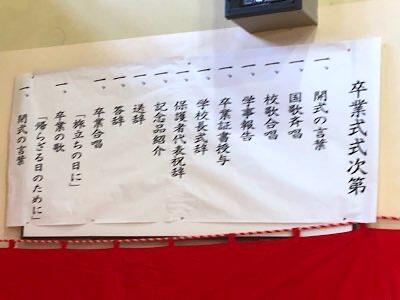 卒業式式次第
一、開式の言葉
一、国歌斉唱
一、校歌合唱
一、学事報告
一、卒業証書授与
一、学校長式辞
一、保護者代表祝辞
一、記念品紹介
一、送辞
一、答辞
一、卒業合唱
「旅立ちの日に」
一、卒業の歌
「帰らざる日のために」
一、閉式の言葉